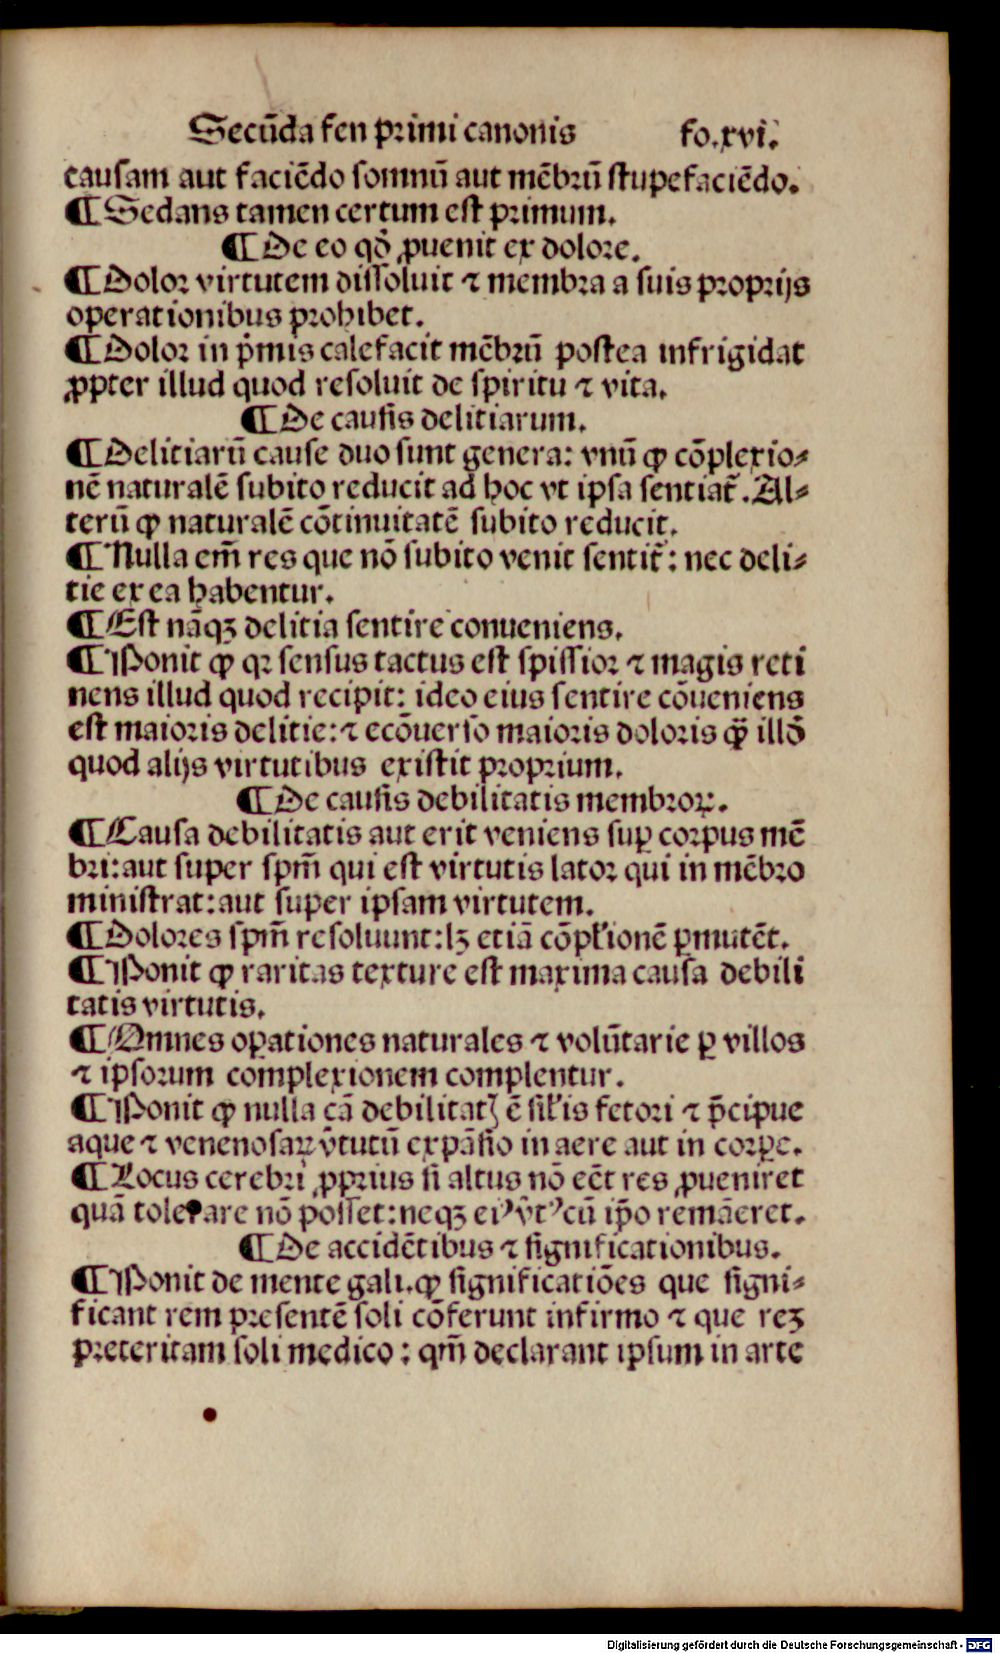 Secūda fen primi canonis fo.xvi.
causam aut faciēdo somnū aut mēbrū stupefaciēdo.
¶ Sedans tamen certum est primum.
¶ De eo qđ ꝓuenit ex dolore.
¶ Dolor virtutem dissoluit ⁊ membra a suis proprijs
operationibus prohibet.
¶ Dolor in p̄mis calefacit mēbrū postea infrigidat
ꝓpter illud quod resoluit de spiritu ⁊ vita.
¶ De causis delitiarum.
¶ Delitiarū cause duo sunt genera: vnū ꝙ cōplexio⸗
nē naturalē subito reducit ad hoc vt ipsa sentiat̄. Al⸗
terū ꝙ naturalē cōtinuitatē subito reducit.
¶ Nulla em̄ res que nō subito venit sentit̄: nec deli⸗
tie ex ea habentur.
¶ Est nāqꝫ delitia sentire conueniens.
¶ Ponit ꝙ qꝛ sensus tactus est spissior ⁊ magis reti
nens illud quod recipit: ideo eius sentire cōueniens
est maioris delitie: ⁊ ecōuerso maioris doloris ꝙ̄ illō
quod alijs virtutibus existit proprium.
¶ De causis debilitatis membroꝝ.
¶ Causa debilitatis aut erit veniens suꝑ corpus mē
bri: aut super spm̄ qui est virtutis lator qui in mēbro
ministrat: aut super ipsam virtutem.
¶ Dolores spm̄ resoluunt: lꝫ etiā cōplłionē ꝑmutēt.
¶ Ponit ꝙ raritas texture est maxima causa debili
tatis virtutis.
¶ Omnes oꝑationes naturales ⁊ volūtarie ꝑ villos
⁊ ipsorum complexionem complentur.
¶ Ponit ꝙ nulla cā debilitatꝭ ē silis fetori ⁊ p̄cipue
aque ⁊ venenosaꝝ v̄tutū expāsio in aere aut in corꝑe.
¶ Locus cerebri ꝓprius si altus nō eēt res ꝓueniret
quā tolerare nō posset: neqꝫ eiꝰ v̄tꝰ cū ip̄o remāeret.
¶ De accidētibus ⁊ significationibus.
¶ Ponit de mente gali. ꝙ significatiōes que signi⸗
ficant rem presentē soli cōferunt infirmo ⁊ que reꝫ
preteritam soli medico: qm̄ declarant ipsum in arte
Digitalisierung gefördert durch die Deutsche Forschungsgemeinschaft - DFG